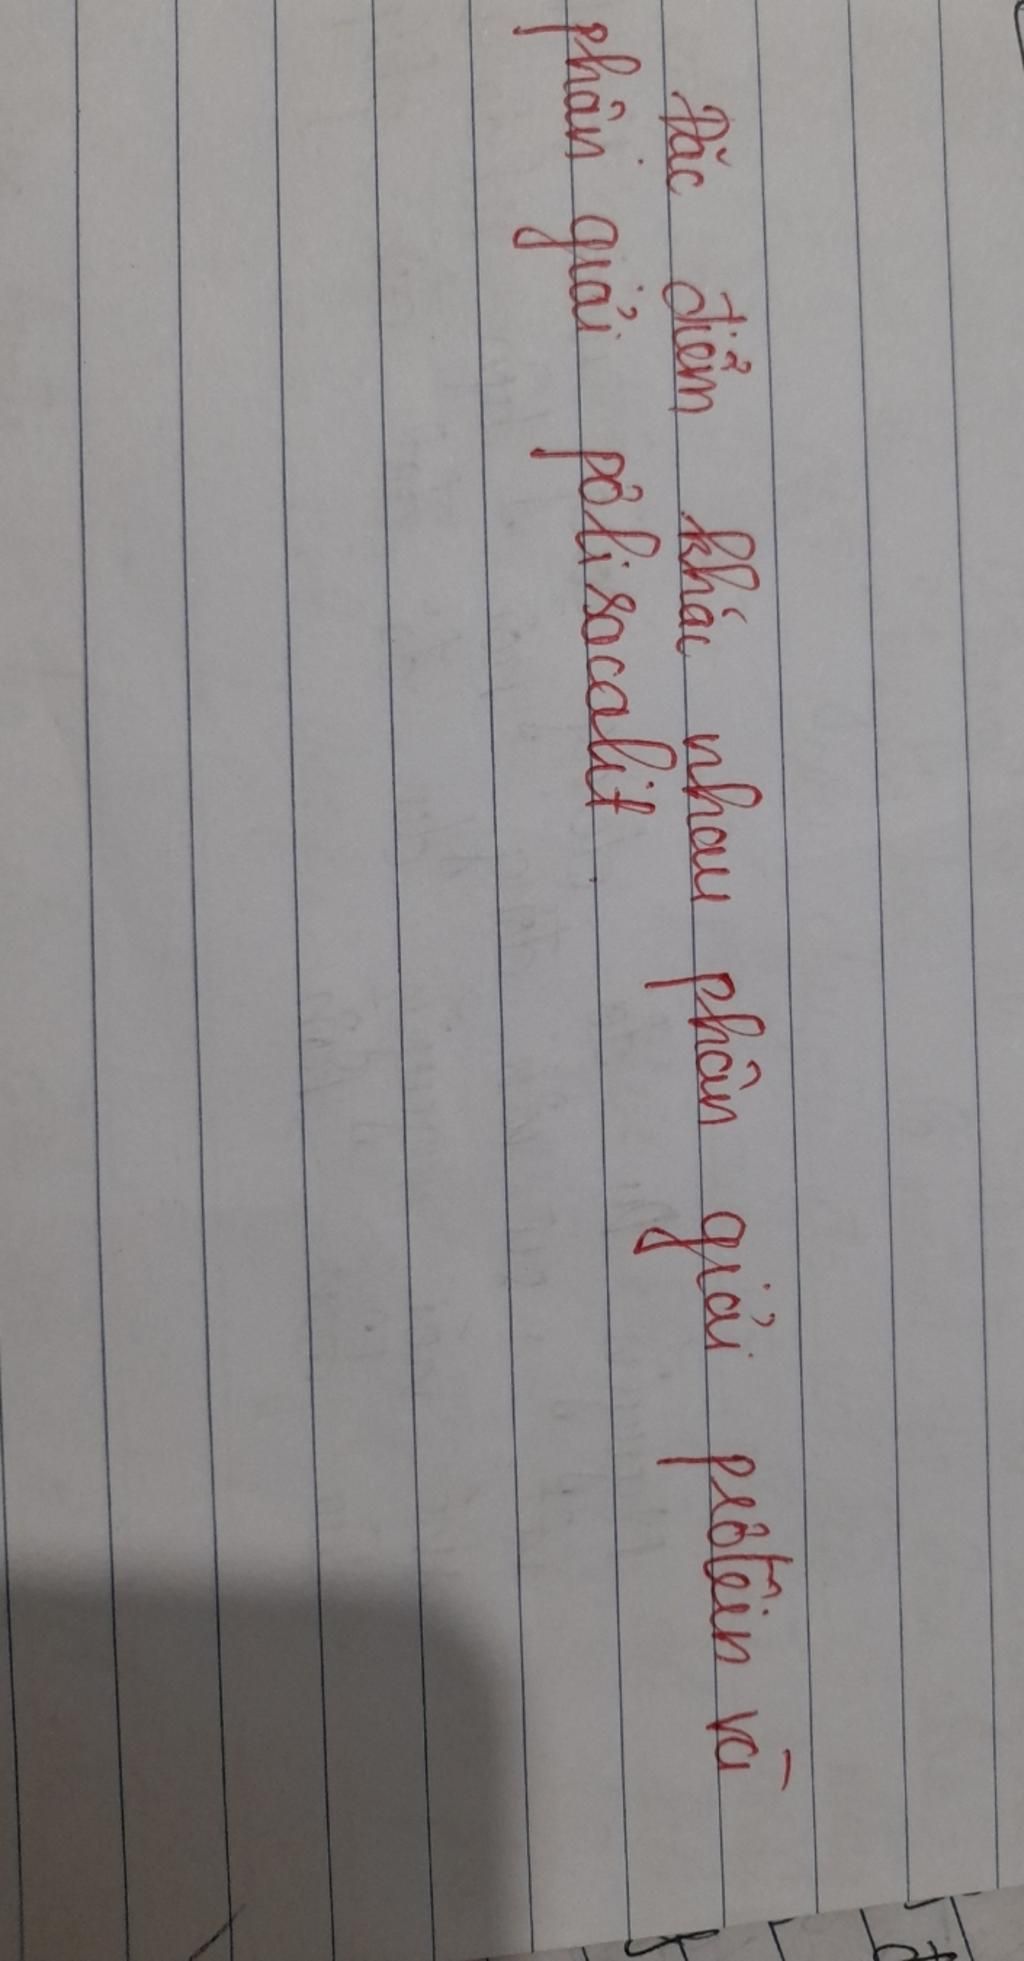 Đặc điểm khác nhau phân giải prôtêin và
phân giải pôlisacalit.